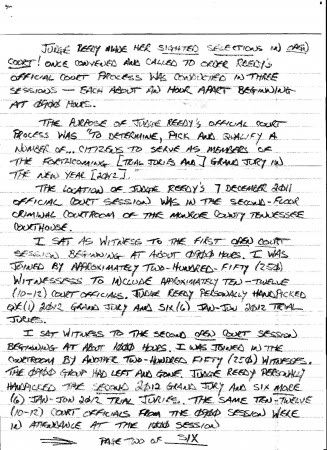 JUDGE REEDY MADE HER SIGHTED SELECTIONS IN OPEN
COURT! ONCE CONVENED AND CALLED TO ORDER REEDY'S
OFFICIAL COURT PROCESS WAS CONDUCTED IN THREE
SESSIONS — EACH ABOUT AN HOUR APART BEGINNING
AT 0900 HOURS.
THE PURPOSE OF JUDGE REEDY'S OFFICIAL COURT
PROCESS WAS "TO DETERMINE, PICK AND QUALIFY A
NUMBER OF... CITIZENS TO SERVE AS MEMBERS OF
THE FORTHCOMING [TRIAL JURIES AND] GRAND JURY IN
THE NEW YEAR [2012]."
THE LOCATION OF JUDGE REEDY'S 7 DECEMBER 2011
OFFICIAL COURT SESSION WAS IN THE SECOND-FLOOR
CRIMINAL COURTROOM OF THE MONROE COUNTY TENNESSEE
COURTHOUSE.
I SAT AS WITNESS TO THE FIRST OPEN COURT
SESSION BEGINNING AT ABOUT 0900 HOURS. I WAS
JOINED BY APPROXIMATELY TWO-HUNDRED-FIFTY (250)
WITNESSESS TO INCLUDE APPROXIMATELY TEN-TWELVE
(10-12) COURT OFFICIALS. JUDGE REEDY PERSONALLY HANDPICKED
ONE (1) 2012 GRAND JURY AND SIX (6) JAN-JUN 2012 TRIAL
JURIES.
I SAT WITNESS TO THE SECOND OPEN COURT SESSION
BEGINNING AT ABOUT 1000 HOURS. I WAS JOINED IN THE
COURTROOM BY ANOTHER TWO-HUNDRED FIFTY (250) WITNESSES.
THE 0900 GROUP HAD LEFT AND GONE. JUDGE REEDY PERSONALLY
HANDPICKED THE SECOND 2012 GRAND JURY AND SIX MORE
(6) JAN-JUN 2012 TRIAL JURIES. THE SAME TEN-TWELVE
(10-12) COURT OFFICIALS FROM THE 0900 SESSION WERE
IN ATTENDANCE AT THE 1000 SESSION
PAGE TWO OF SIX